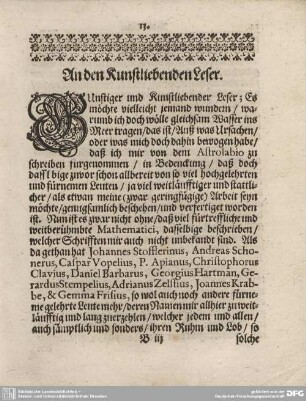 13.
An den Kunstliebenden Leser.
GUnstiger und Kunstliebender Leser; Es
möchte vielleicht jemand wundern / wa-
rumb ich doch wölle gleichsam Wasser ins
Meer tragen / das ist / Auß was Ursachen /
oder was mich doch dahin bewogen habe /
daß ich mir von dem Astrolabio zu
schreiben fürgenommen / in Bedenckung / daß doch
dasselbige zwar schon allbereit von so viel hochgelehrten
und fürnemen Leuten / ja viel weitläufftiger und stattli-
cher / als etwan meine (zwar geringfügige) Arbeit seyn
möchte / genugsamlich beschehen / und verfertiget worden
ist. Nun ist es zwar nicht ohne / daß viel fürtreffliche und
weitberühmbte Mathematici, dasselbige beschrieben /
welcher Schrifften mir auch nicht unbekandt sind. Als
da gethan hat Johannes Stofflerinus, Andreas Scho-
nerus, Caspar Vopelius, P. Apianus, Christophorus
Clavius, Daniel Barbarus, Georgius Hartman, Ge-
rardus Stempelius, Adrianus Zelstius, Joannes Krab-
be, & Gemma Frisius, so wol auch noch andere fürne-
me gelehrte Leute mehr / deren Namen mir allhier zu weit-
läufftig und lang zu erzehlen / welcher jedem und allen /
auch sämptlich und sonders / ihren Ruhm und Lob / so
B iij
solche